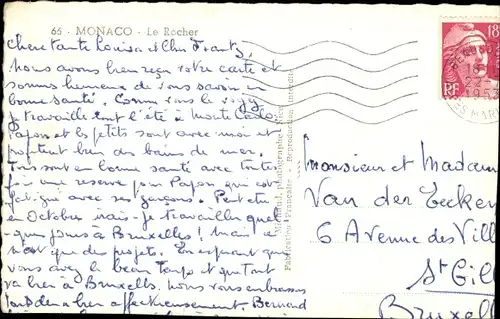 66 - MONACO - Le Rocher
Chère tante Louisa et Cher Frantz,
Nous avons bien reçu votre carte et
sommes heureux de vous savoir en
bonne santé. Comme vous le voyez
je travaille tout l'été à Monte Carlo.
et les petits sont avec moi et
profitent bien des bains de mer.
Tous sont en bonne santé avec toute-
fois une réserve pour Papon qui est
fatigué avec ses garçons. Peut etre
en Octobre irais-je travailler quel-
ques jours à Bruxelles! Mais ce
n'est que des projets. En espérant que
vous avez le beau temps et que tout
va bien à Bruxelles. Nous vous embrassons
bien affectueusement. Bernard
photographe
Fabrication Française - Reproduction interdite
Monsieur et Madame
Van der Eecken
6 Avenue des Vill
St Gil
Bruxel
18
RF
22-
1953